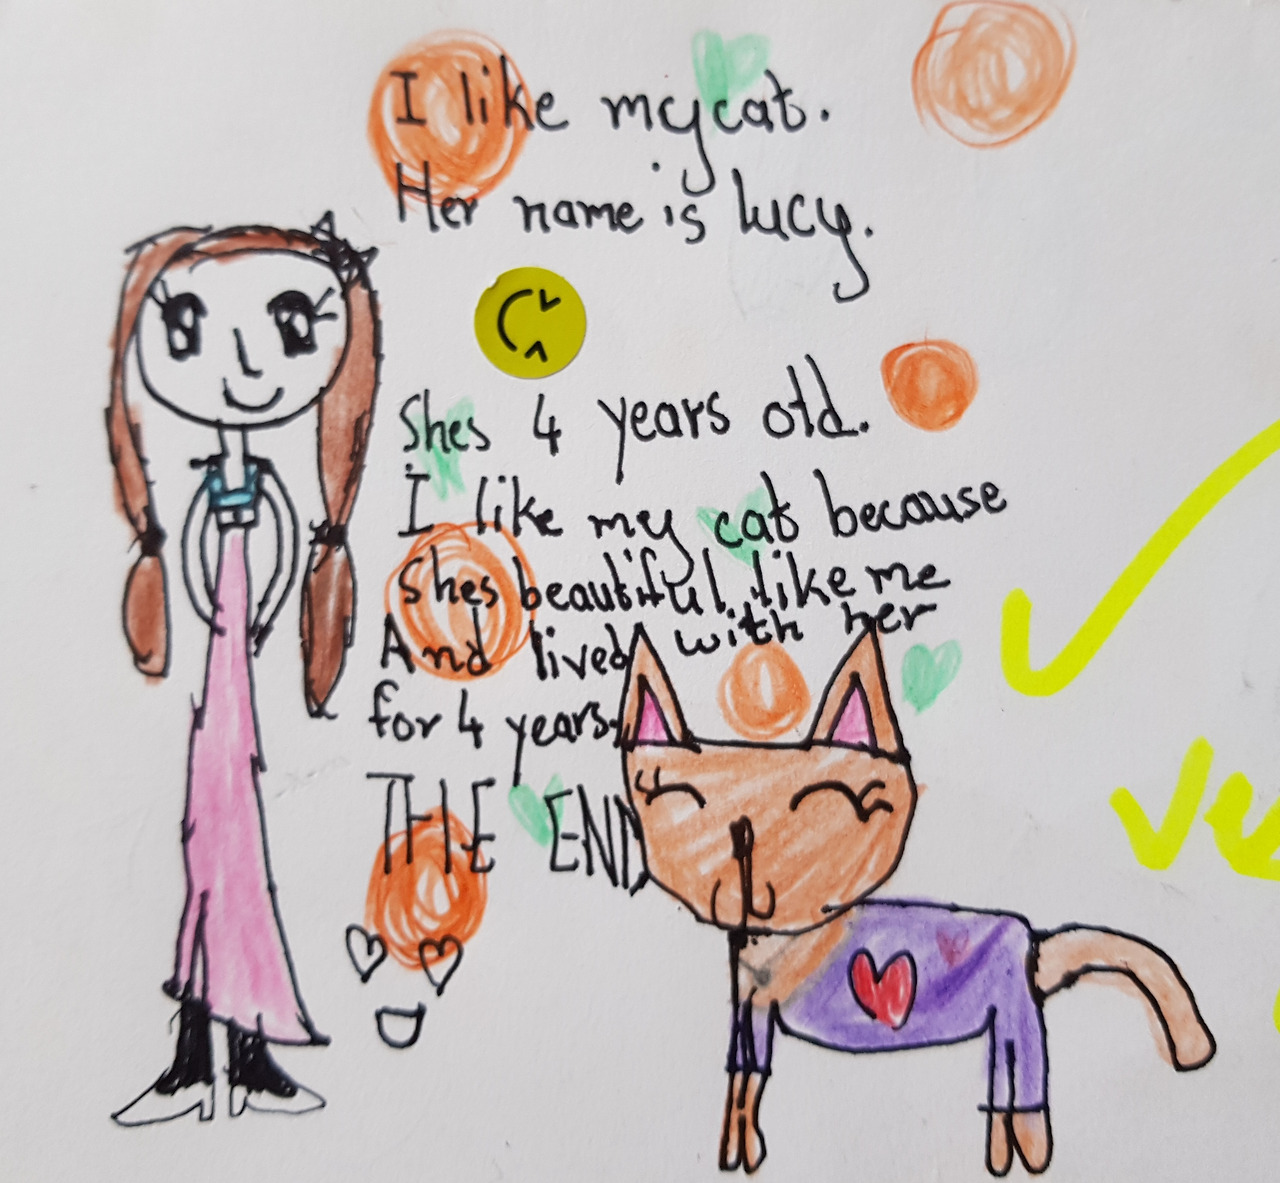 I like my cat.
Her name is lucy.
Shes 4 years old.
I like my cat because
shes beautiful like me
And lived with her
for 4 years.
THE END